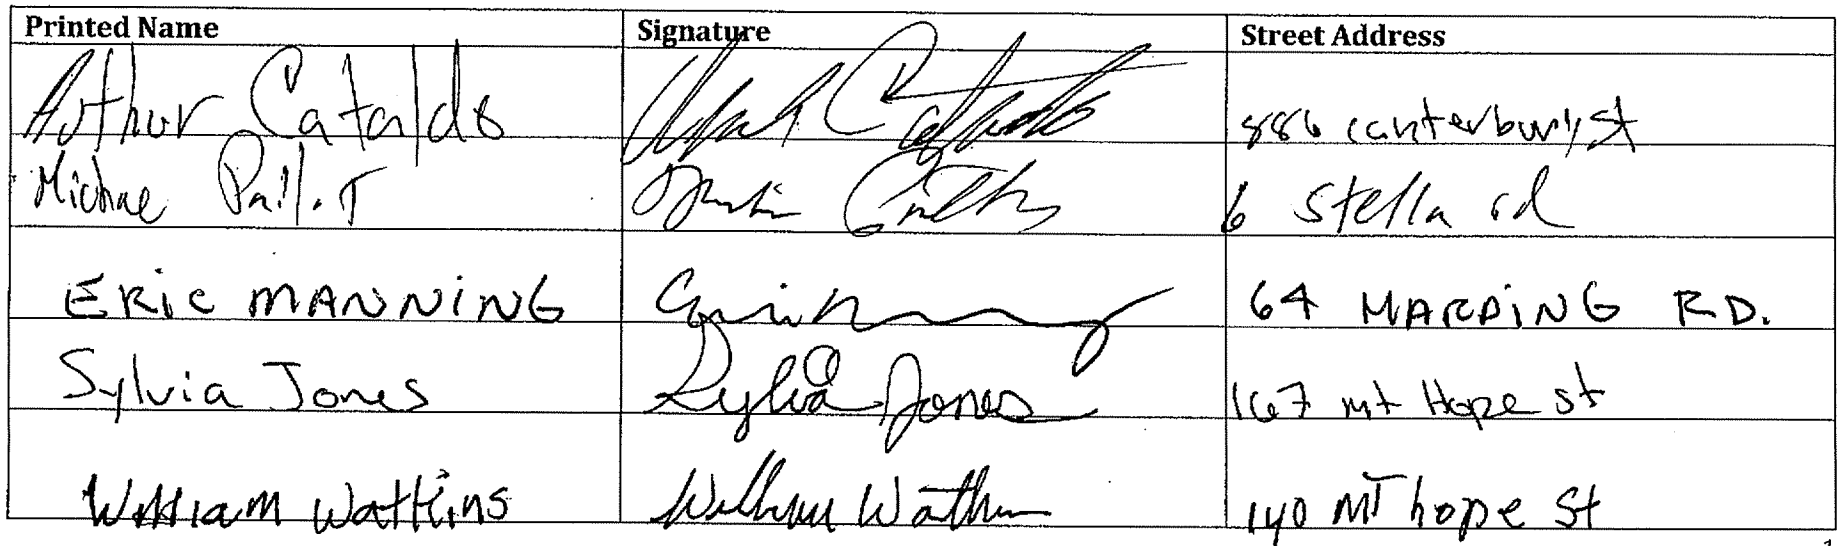 Printed Name Signature Street Address
Arthur Cataldo 886 canterbury st
Michae 6 Stella rd
ERiC MANNiNG 64 MARDiNG RD.
Sylvia Jones Sylvia Jones 167 mt Hope st
William Watkins William Watkins 140 MT hope St
1